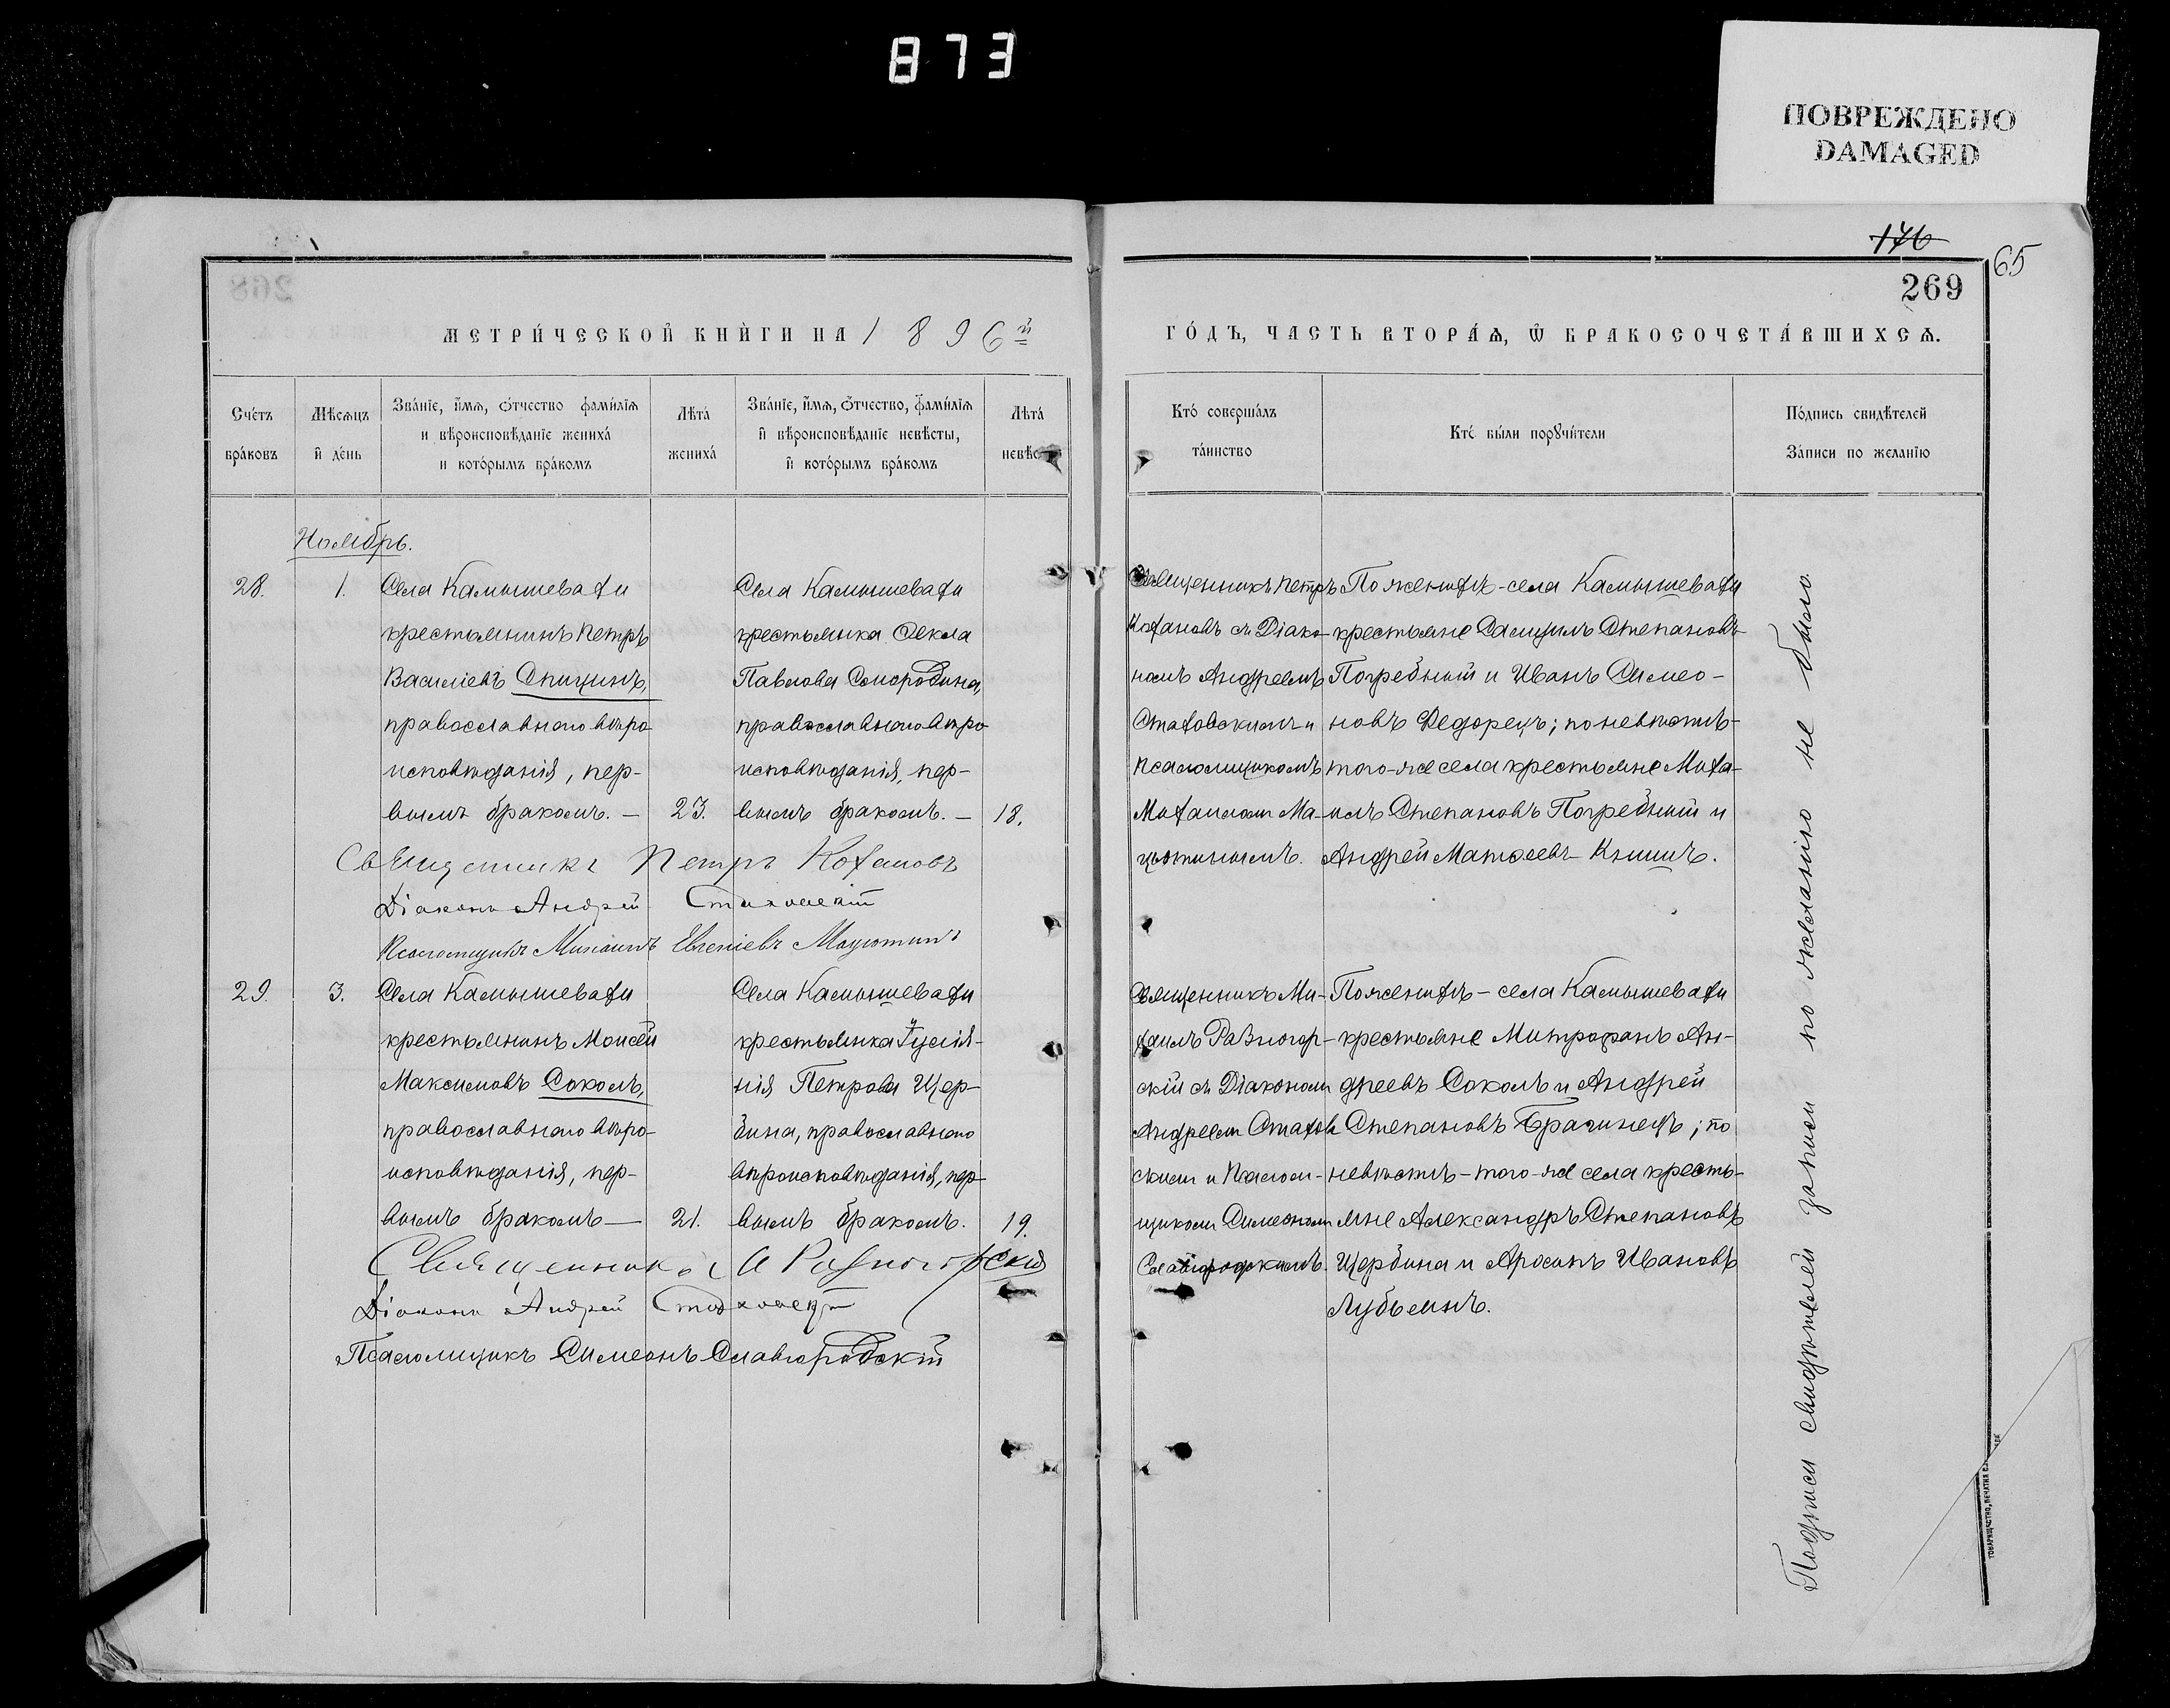 873
ПОВРЕЖДЕНО
DAMAGED
176
65
269
МЕТРИ́ЧЕСКОЙ КНИ́ГИ НА 1896й
ГО́ДЪ, ЧАСТЬ ВТОРА́Ѧ, Ѿ БРАКОСОЧЕТА́ВШИХСѦ.
Сче́тъ
бра́ковъ
Мѣсѧцъ
и҆ де́нь
Зва́нїе, и҆́мѧ, ѻ҆́тчество фами́лїѧ
и вѣроисповѣданїе жениха́
и кото́рымъ бра́комъ
Лѣта́
жениха́
Зва́нїе, и҆́мѧ, ѻ҆́тчество, фами́лїѧ
и҆ вѣроисповѣданїе невѣсты,
и҆ кото́рымъ бра́комъ
Лѣта́
невѣс
Кто́ соверша́лъ
та́инство
Кто́ бы́ли порꙋчи́тели
По́дпись свидѣтелей
За́писи по желанїю
Ноябрь.
28.
1.
Села Камышевахи
крестьянинъ Петръ
Василіевъ Спицинъ,
православнаго вѣро-
исповѣданія, пер-
вымъ бракомъ. –
23.
Села Камышевахи
крестьянка Ѳекла
Павлова Смородина,
православнаго вѣро-
исповѣданія, пер-
вымъ бракомъ. –
18.
Священникъ Петръ
Кохановъ съ Діако-
номъ Андреемъ
Стаховскимъ и
псаломщикомъ
Михаиломъ Ма-
цютинымъ.
По женихѣ – села Камышевахи
крестьяне Даніилъ Степановъ
Погребный и Иванъ Симео-
новъ Федорецъ; по невѣстѣ –
того-же села крестьяне Миха-
илъ Степановъ Погребный и
Андрей Матѳеевъ Кышъ.
Священникъ Петръ Кохановъ
Діаконъ Андрей Стаховскій
Псаломщикъ Михаилъ Евгеніевъ Мацютинъ
29.
3.
Села Камышевахи
крестьянинъ Моисей
Максимовъ Соколъ,
православнаго вѣро-
исповѣданія, пер-
вымъ бракомъ –
21.
Села Камышевахи
крестьянка
нія Петрова Щер-
бина, православнаго
вѣроисповѣданія, пер-
вымъ бракомъ.
19.
Священникъ Ми-
хаилъ Разногор-
скій съ Діакономъ
Андреемъ Стахов-
скимъ и Псалом-
щикомъ Симеономъ
Славгородскимъ.
По женихѣ – села Камышевахи
крестьяне Митрофанъ Ан-
дреевъ Соколъ и Андрей
Степановъ Брагинецъ; по
невѣстѣ – того-же села кресть-
яне Александръ Степановъ
Щербина и Ивановъ
Лубьянъ.
Священникъ М Разногорскій
Діаконъ Андрей Стаховскій
Псаломщикъ Симеонъ Славгородскій
Подписи свидѣтелей записи по желанію не было.